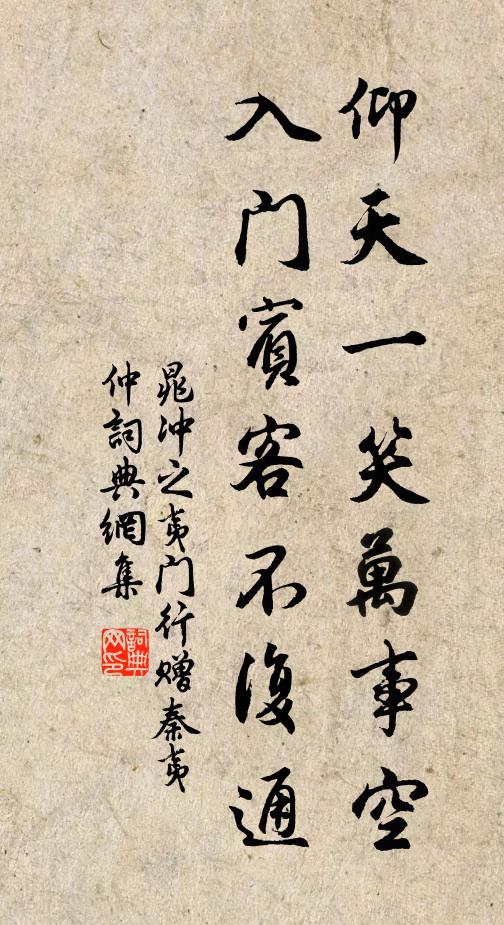 仰天一笑萬事空
入門賓客不復通
晁沖之夷門行贈秦夷
仲詞典網集
詞典
网印